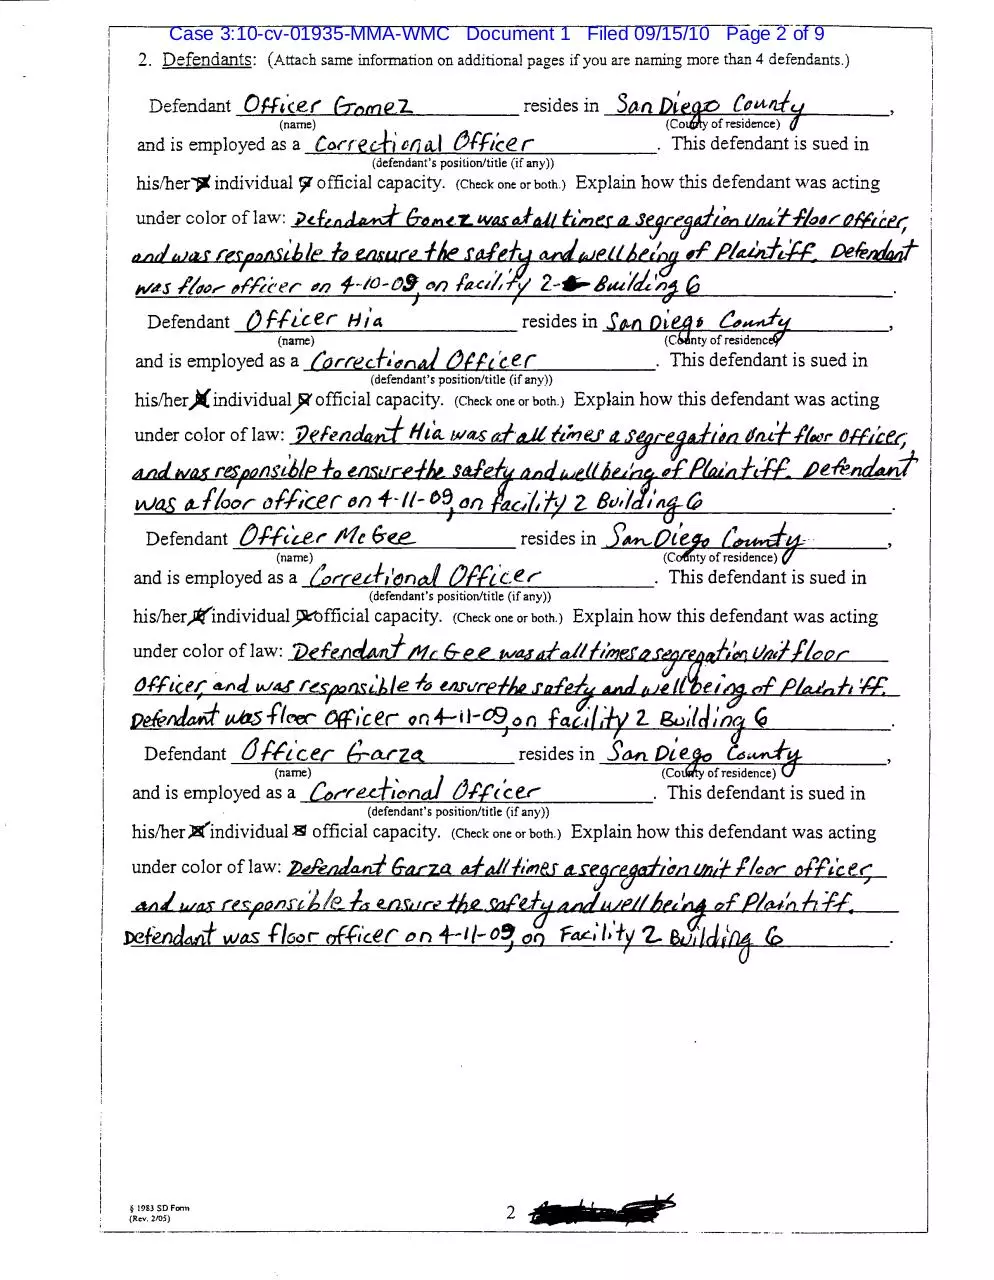 Case 3:10-cv-01935-MMA-WMC Document 1 Filed 09/15/10 Page 2 of 9
2. Defendants: (Attach same information on additional pages if you are naming more than 4 defendants.)
Defendant Officer Gomez resides in San Diego County,
(name) (County of residence)
and is employed as a Correctional Officer. This defendant is sued in
(defendant's position/title (if any))
his/her individual official capacity. (Check one or both.) Explain how this defendant was acting
under color of law: Defendant Gomez was at all times a segregation Unit floor officer,
and was responsible to ensure the safety and well being of Plaintiff. Defendant
was floor officer on 4-10-09, on facility 2- Building 6.
Defendant Officer Hia resides in San Diego County,
(name) (County of residence)
and is employed as a Correctional Officer. This defendant is sued in
(defendant's position/title (if any))
his/her individual official capacity. (Check one or both.) Explain how this defendant was acting
under color of law: Defendant Hia was at all times a segregation Unit floor officer,
and was responsible to ensure the safety and well being of Plaintiff. Defendant
was a floor officer on 4-11-09, on facility 2 Building 6.
Defendant Officer McGee resides in San Diego County,
(name) (County of residence)
and is employed as a Correctional Officer. This defendant is sued in
(defendant's position/title (if any))
his/her individual official capacity. (Check one or both.) Explain how this defendant was acting
under color of law: Defendant McGee was at all times a segregation Unit floor
Officer, and was responsible to ensure the safety and well being of Plaintiff.
Defendant was floor Officer on 4-11-09, on facility 2 Building 6.
Defendant Officer Garza resides in San Diego County,
(name) (County of residence)
and is employed as a Correctional Officer. This defendant is sued in
(defendant's position/title (if any))
his/her individual official capacity. (Check one or both.) Explain how this defendant was acting
under color of law: Defendant Garza at all times a segregation unit floor officer,
and was responsible to ensure the safety and well being of Plaintiff.
Defendant was floor officer on 4-11-09, on Facility 2 Building 6.
§ 1983 SD Form
(Rev. 2/05)
2